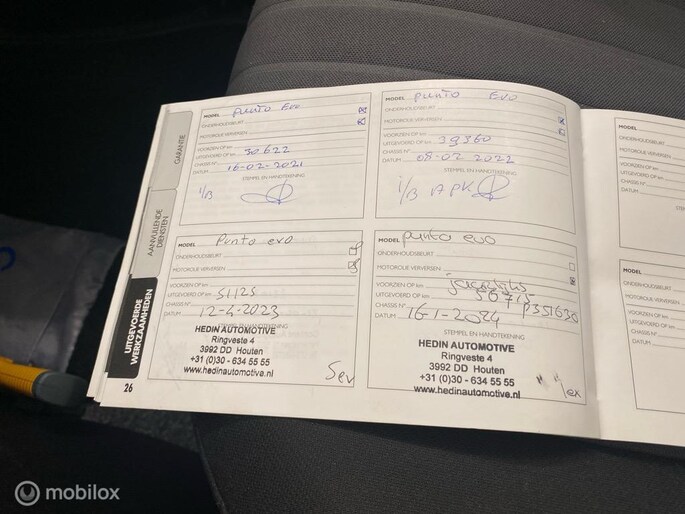 GARANTIE
AANVULLENDE
DIENSTEN
UITGEVOERDE
WERKZAAMHEDEN
MODEL Punto Evo
ONDERHOUDSBEURT
MOTOROLIE VERVERSEN
VOORZIEN OP km
UITGEVOERD OP km 30622
CHASSIS N°
DATUM 16-02-2021
STEMPEL EN HANDTEKENING
I/B
MODEL Punto Evo
ONDERHOUDSBEURT
MOTOROLIE VERVERSEN
VOORZIEN OP km
UITGEVOERD OP km 39360
CHASSIS N°
DATUM 08-02-2022
STEMPEL EN HANDTEKENING
I/B APK
MODEL Punto evo
ONDERHOUDSBEURT
MOTOROLIE VERVERSEN
VOORZIEN OP km
UITGEVOERD OP km 51125
CHASSIS N°
DATUM 12-4-2023
STEMPEL EN HANDTEKENING
HEDIN AUTOMOTIVE
Ringveste 4
3992 DD Houten
+31 (0)30 - 634 55 55
www.hedinautomotive.nl
MODEL Punto evo
ONDERHOUDSBEURT
MOTOROLIE VERVERSEN
VOORZIEN OP km
UITGEVOERD OP km
CHASSIS N°
DATUM 16-1-2024
STEMPEL EN HANDTEKENING
HEDIN AUTOMOTIVE
Ringveste 4
3992 DD Houten
+31 (0)30 - 634 55 55
www.hedinautomotive.nl
MODEL
ONDERHOUDSBEURT
MOTOROLIE VERVERSEN
VOORZIEN OP km
UITGEVOERD OP km
CHASSIS N°
DATUM
MODEL
ONDERHOUDSBEURT
MOTOROLIE VERVERSEN
VOORZIEN OP km
UITGEVOERD OP km
CHASSIS N°
DATUM
26
mobilox